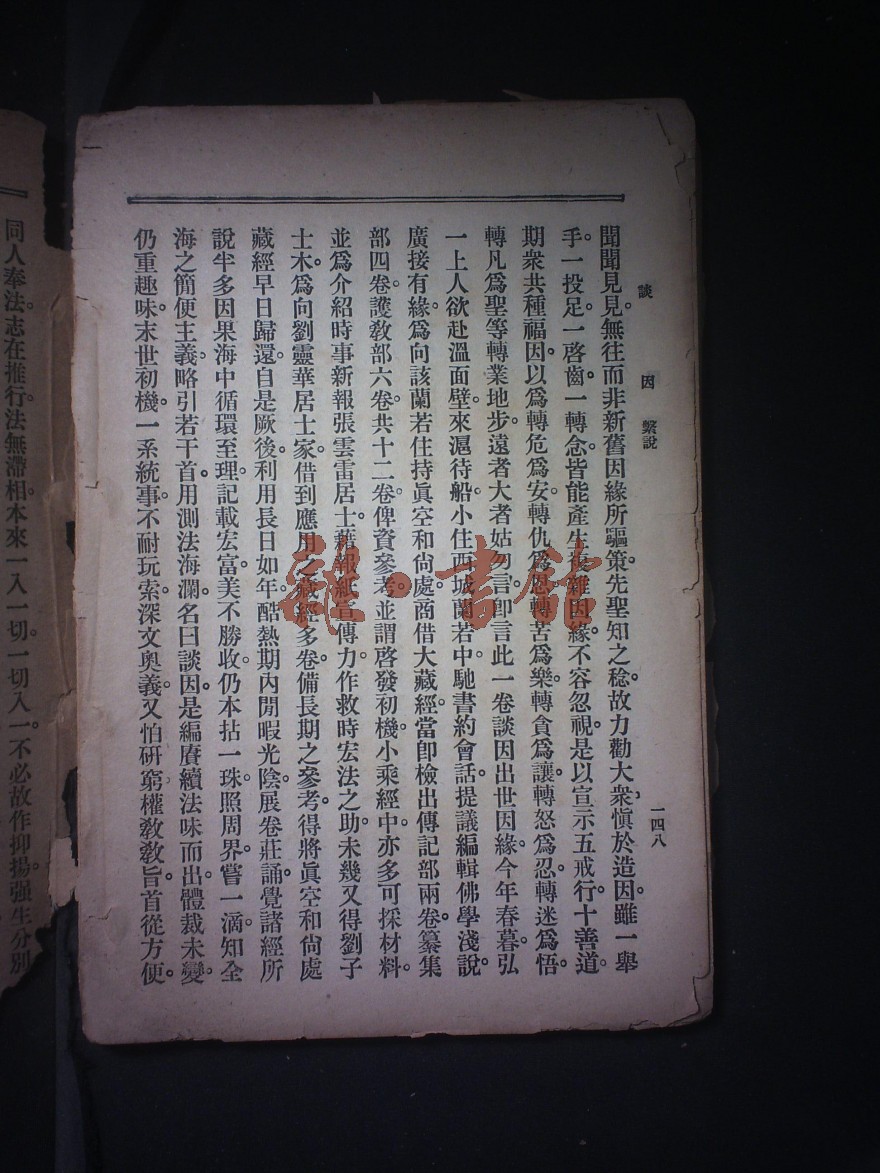 談 因 繫說 一四八
聞聞見見。無往而非新舊因緣所驅策。先聖知之稔。故力勸大衆愼於造因。雖一舉
手。一投足。一啓齒。一轉念。皆能產生複雜因緣。不容忽視。是以宣示五戒。行十善道。
期衆共種福因。以爲轉危爲安。轉仇爲恩。轉苦爲樂。轉貪爲讓。轉怒爲忍。轉迷爲悟。
轉凡爲聖等轉業地步。遠者大者姑勿言。卽言此一卷談因出世因緣。今年春暮。弘
一上人欲赴溫面壁。來滬待船。小住西城蘭若中。馳書約會話。提議編輯佛學淺說。
廣接有緣。爲向該蘭若住持眞空和尙處。商借大藏經。當卽檢出傳記部兩卷。纂集
部四卷。護敎部六卷。共十二卷。俾資參考。並謂啓發初機。小乘經中。亦多可採材料。
並爲介紹時事新報張雲雷居士。藉報紙宣傳力。作救時宏法之助。未幾又得劉子
士木。爲向劉靈華居士家。借到應用之藏經多卷。備長期之參考。得將眞空和尙處
藏經早日歸還。自是厥後。利用長日如年。酷熱期內閒暇光陰。展卷莊誦。覺諸經所
說。半多因果海中循環至理。記載宏富。美不勝收。仍本拈一珠。照周界。嘗一滴。知全
海之簡便主義。略引若干首。用測法海瀾。名曰談因。是編賡續法味而出。體裁未變。
仍重趣味。末世初機。一系統事。不耐玩索深文奧義。又怕研窮權敎敎旨。首從方便。
同人奉法。志在推行。法無滯相。本來一入一切。一切入一。不必故作抑揚。强生分別
雒書館